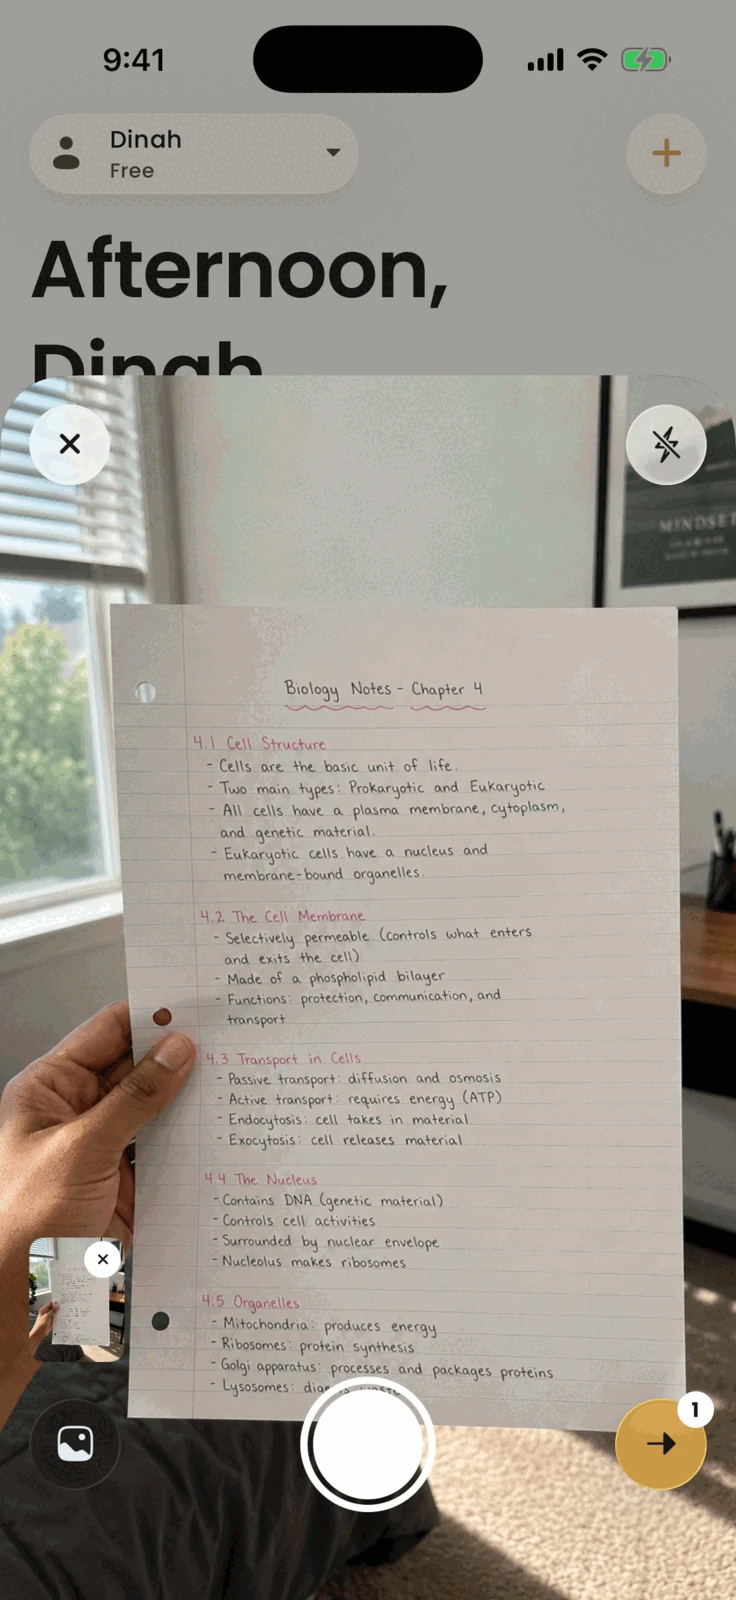 9:41
Dinah
Free
Afternoon,
Dinah
MINDSET
Biology Notes - Chapter 4
4.1 Cell Structure
- Cells are the basic unit of life.
- Two main types: Prokaryotic and Eukaryotic
- All cells have a plasma membrane, cytoplasm,
and genetic material.
- Eukaryotic cells have a nucleus and
membrane-bound organelles.
4.2 The Cell Membrane
- Selectively permeable (controls what enters
and exits the cell)
- Made of a phospholipid bilayer
- Functions: protection, communication, and
transport
4.3 Transport in Cells
- Passive transport: diffusion and osmosis
- Active transport: requires energy (ATP)
- Endocytosis: cell takes in material
- Exocytosis: cell releases material
4.4 The Nucleus
- Contains DNA (genetic material)
- Controls cell activities
- Surrounded by nuclear envelope
- Nucleolus makes ribosomes
4.5 Organelles
- Mitochondria: produces energy
- Ribosomes: protein synthesis
- Golgi apparatus: processes and packages proteins
- Lysosomes:
1